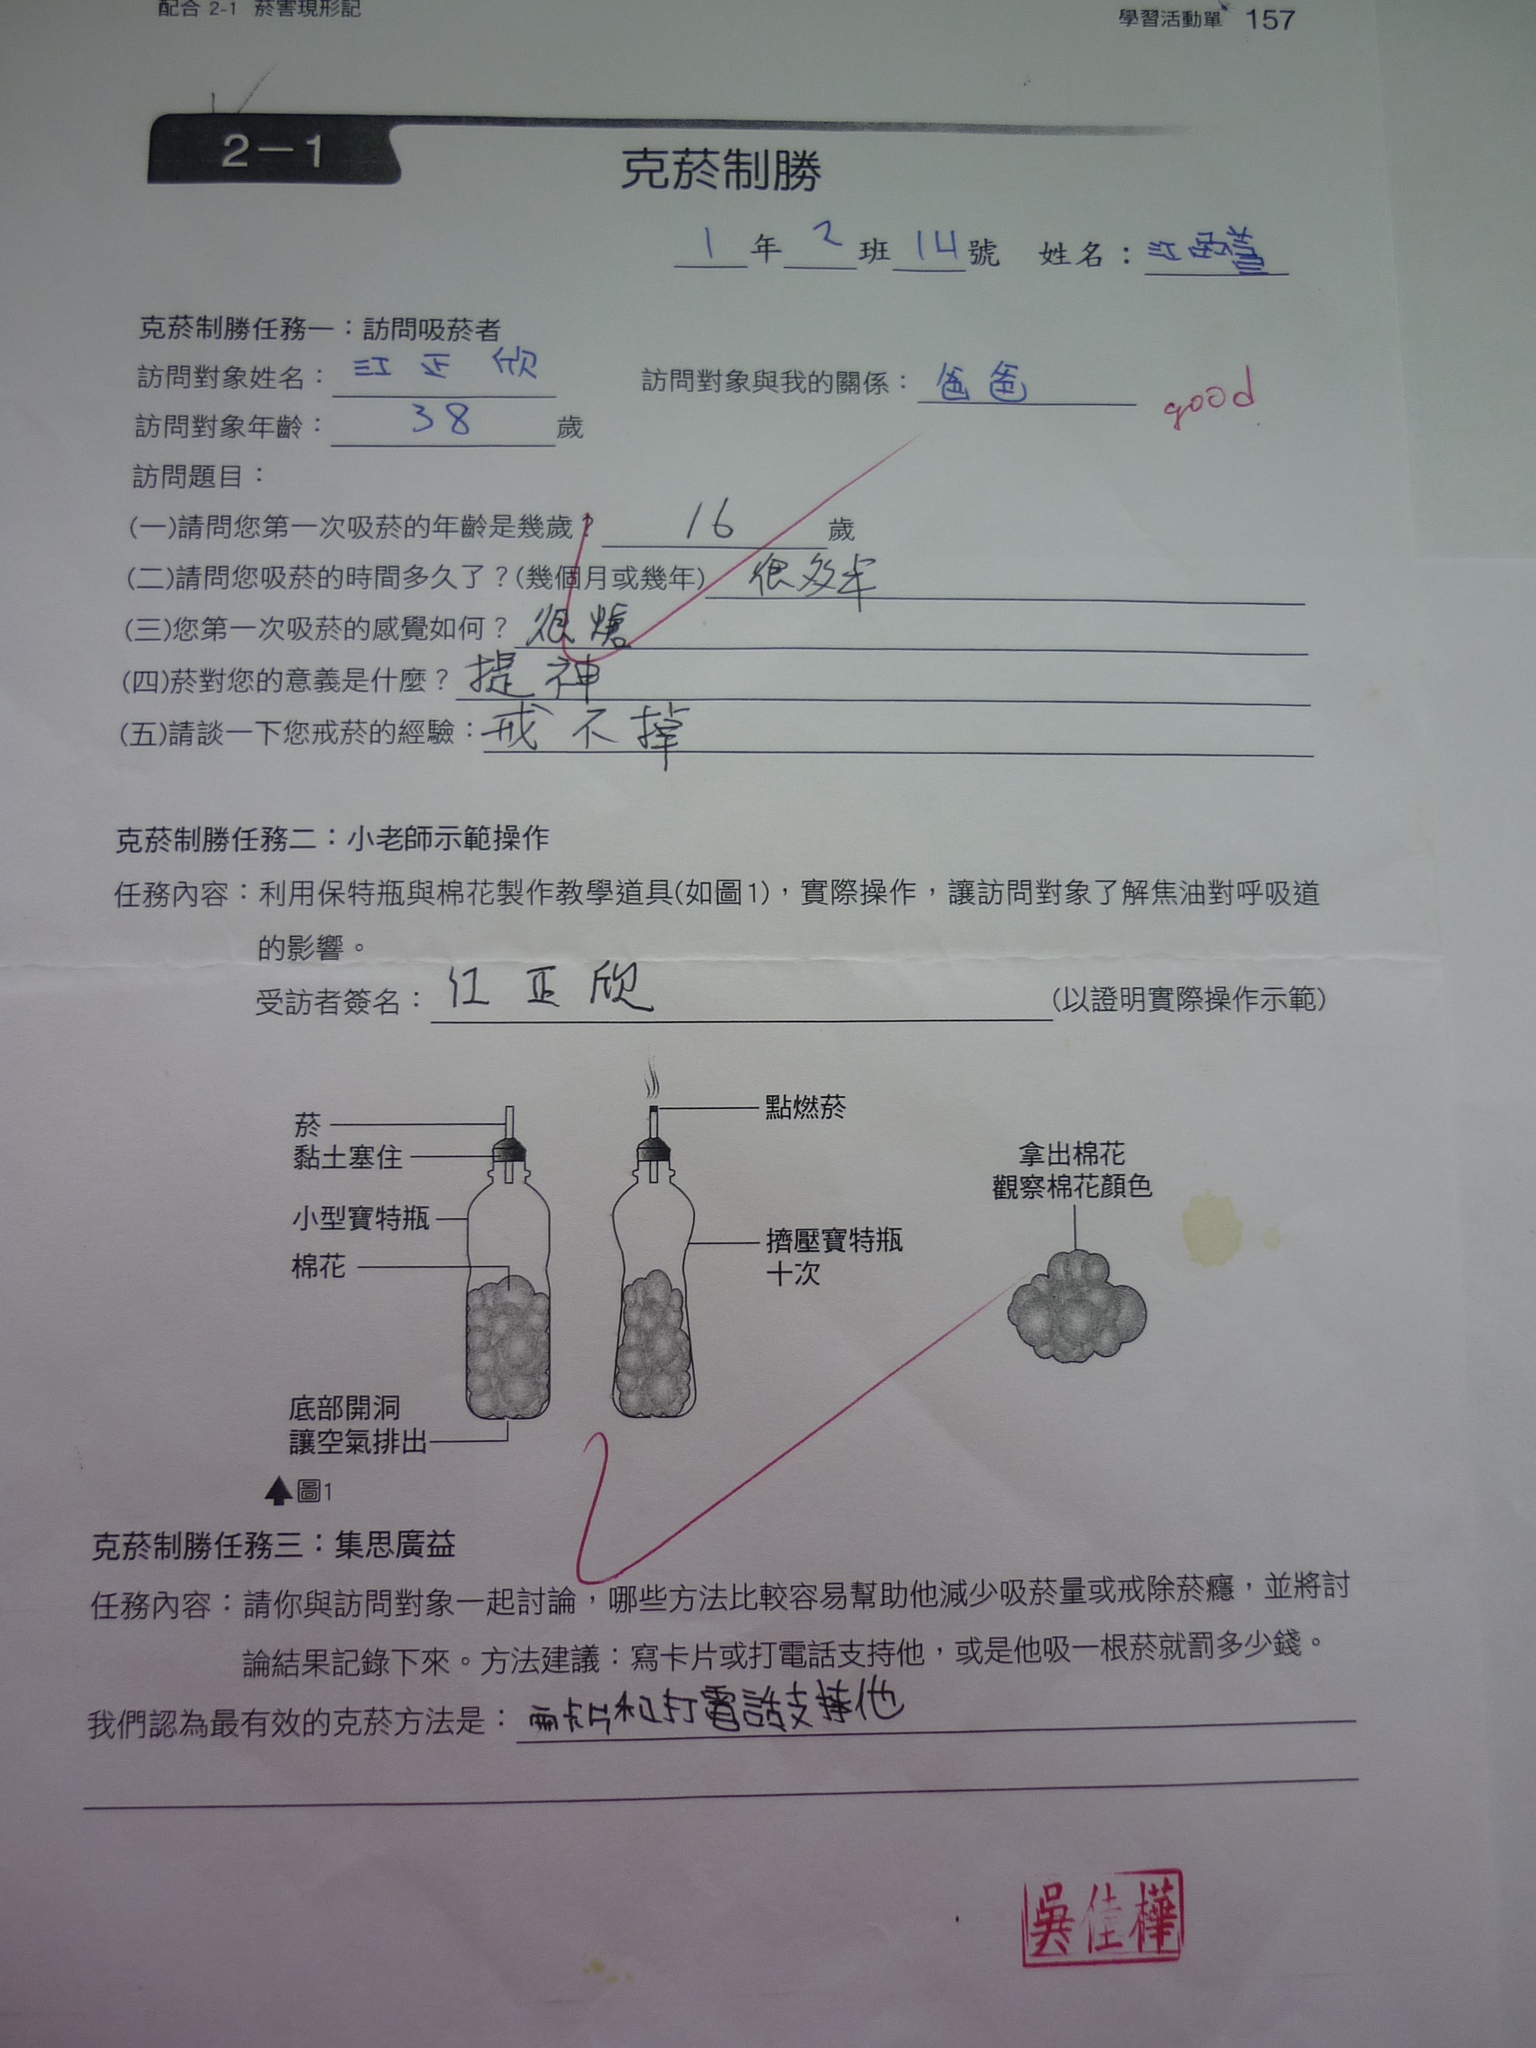 配合 2-1 菸害現形記
學習活動單 157
2－1
克菸制勝
1年2班14號 姓名：江
克菸制勝任務一：訪問吸菸者
訪問對象姓名：江正欣 訪問對象與我的關係：爸爸
good
訪問對象年齡：38歲
訪問題目：
(一)請問您第一次吸菸的年齡是幾歲？16歲
(二)請問您吸菸的時間多久了？(幾個月或幾年)很多年
(三)您第一次吸菸的感覺如何？很嗆
(四)菸對您的意義是什麼？提神
(五)請談一下您戒菸的經驗：戒不掉
克菸制勝任務二：小老師示範操作
任務內容：利用保特瓶與棉花製作教學道具(如圖1)，實際操作，讓訪問對象了解焦油對呼吸道
的影響。
受訪者簽名：江正欣(以證明實際操作示範)
菸
黏土塞住
小型寶特瓶
棉花
底部開洞
讓空氣排出
點燃菸
擠壓寶特瓶
十次
拿出棉花
觀察棉花顏色
圖1
克菸制勝任務三：集思廣益
任務內容：請你與訪問對象一起討論，哪些方法比較容易幫助他減少吸菸量或戒除菸癮，並將討
論結果記錄下來。方法建議：寫卡片或打電話支持他，或是他吸一根菸就罰多少錢。
我們認為最有效的克菸方法是：卡片和打電話支持他
吳佳樺